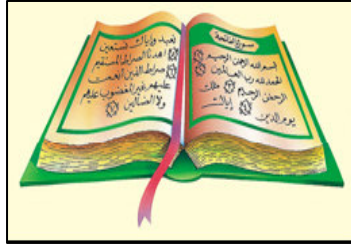 سورة الفاتحة
بسم الله الرحمن الرحيم
الحمد لله رب العالمين
الرحمن الرحيم ملك
يوم الدين إياك
نعبد وإياك نستعين
اهدنا الصراط المستقيم
صراط الذين أنعمت
عليهم غير المغضوب عليهم
ولا الضالين